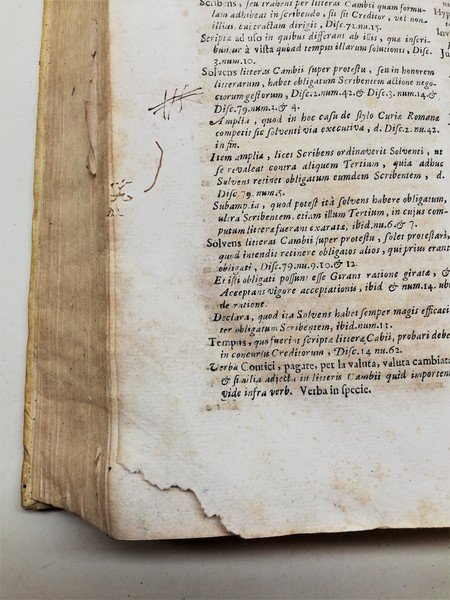 Scribens, seu trahens per litteras Cambii quam formu-
lam adhibeat in scribendo, sit sit Creditor, vel non.
illius. cui tractam dirigit, Disc.72.nu.15.
Scripta ad uso in quibus differant ab illis, quæ inscri-
buntur à vista quoad tempus illarum solutionis, Disc.
3.num.10.
Solvens litteras Cambii super protestu, seu in honorem
litterarum, habet obligatum Scribentem actione nego-
ciorum gestorum, Disc.2.num.42.& Disc.3.num.14.&
Disc.79.num.2.& 4.
Amplia, quod in hoc casu de stylo Curiæ Romanæ
competit sic solventi via executiva, d. Disc.2.nu.42.
in fin.
Item amplia, licet Scribens ordinaverit Solventi, ut
se revaleat contra aliquem Tertium, quia adhuc
Solvens retinet obligatum eumdem Scribentem, d.
Disc.79.num.5.
Subamplia, quod potest ità solvens habere obligatum,
ultra Scribentem. etiam illum Tertium, in cujus com-
putum litteræ fuerant exaratæ, ibid.nu.6.& 7.
Solvens litteras Cambii super protestu, solet protestari,
quòd intendit retinere obligatos alios, qui prius erant
obligati, Disc.79.nu.9.10.& 12.
Et isti obligati possunt esse Girans ratione girata, &
Acceptans vigore acceptationis, ibid & num.14. ubi
de ratione.
Declara, quod ita Solvens habet semper magis efficaci-
ter obligatum Scribentem, ibid.num.11.
Tempus, quo fuerit scripta littera Cabii, probari debet
in concursu Creditorum, Disc.14 nu.62.
Verba Contici, pagate, per la valuta, valuta cambiata
& si alia adjecta in litteris Cambii quid importent
vide infra verb. Verba in specie.